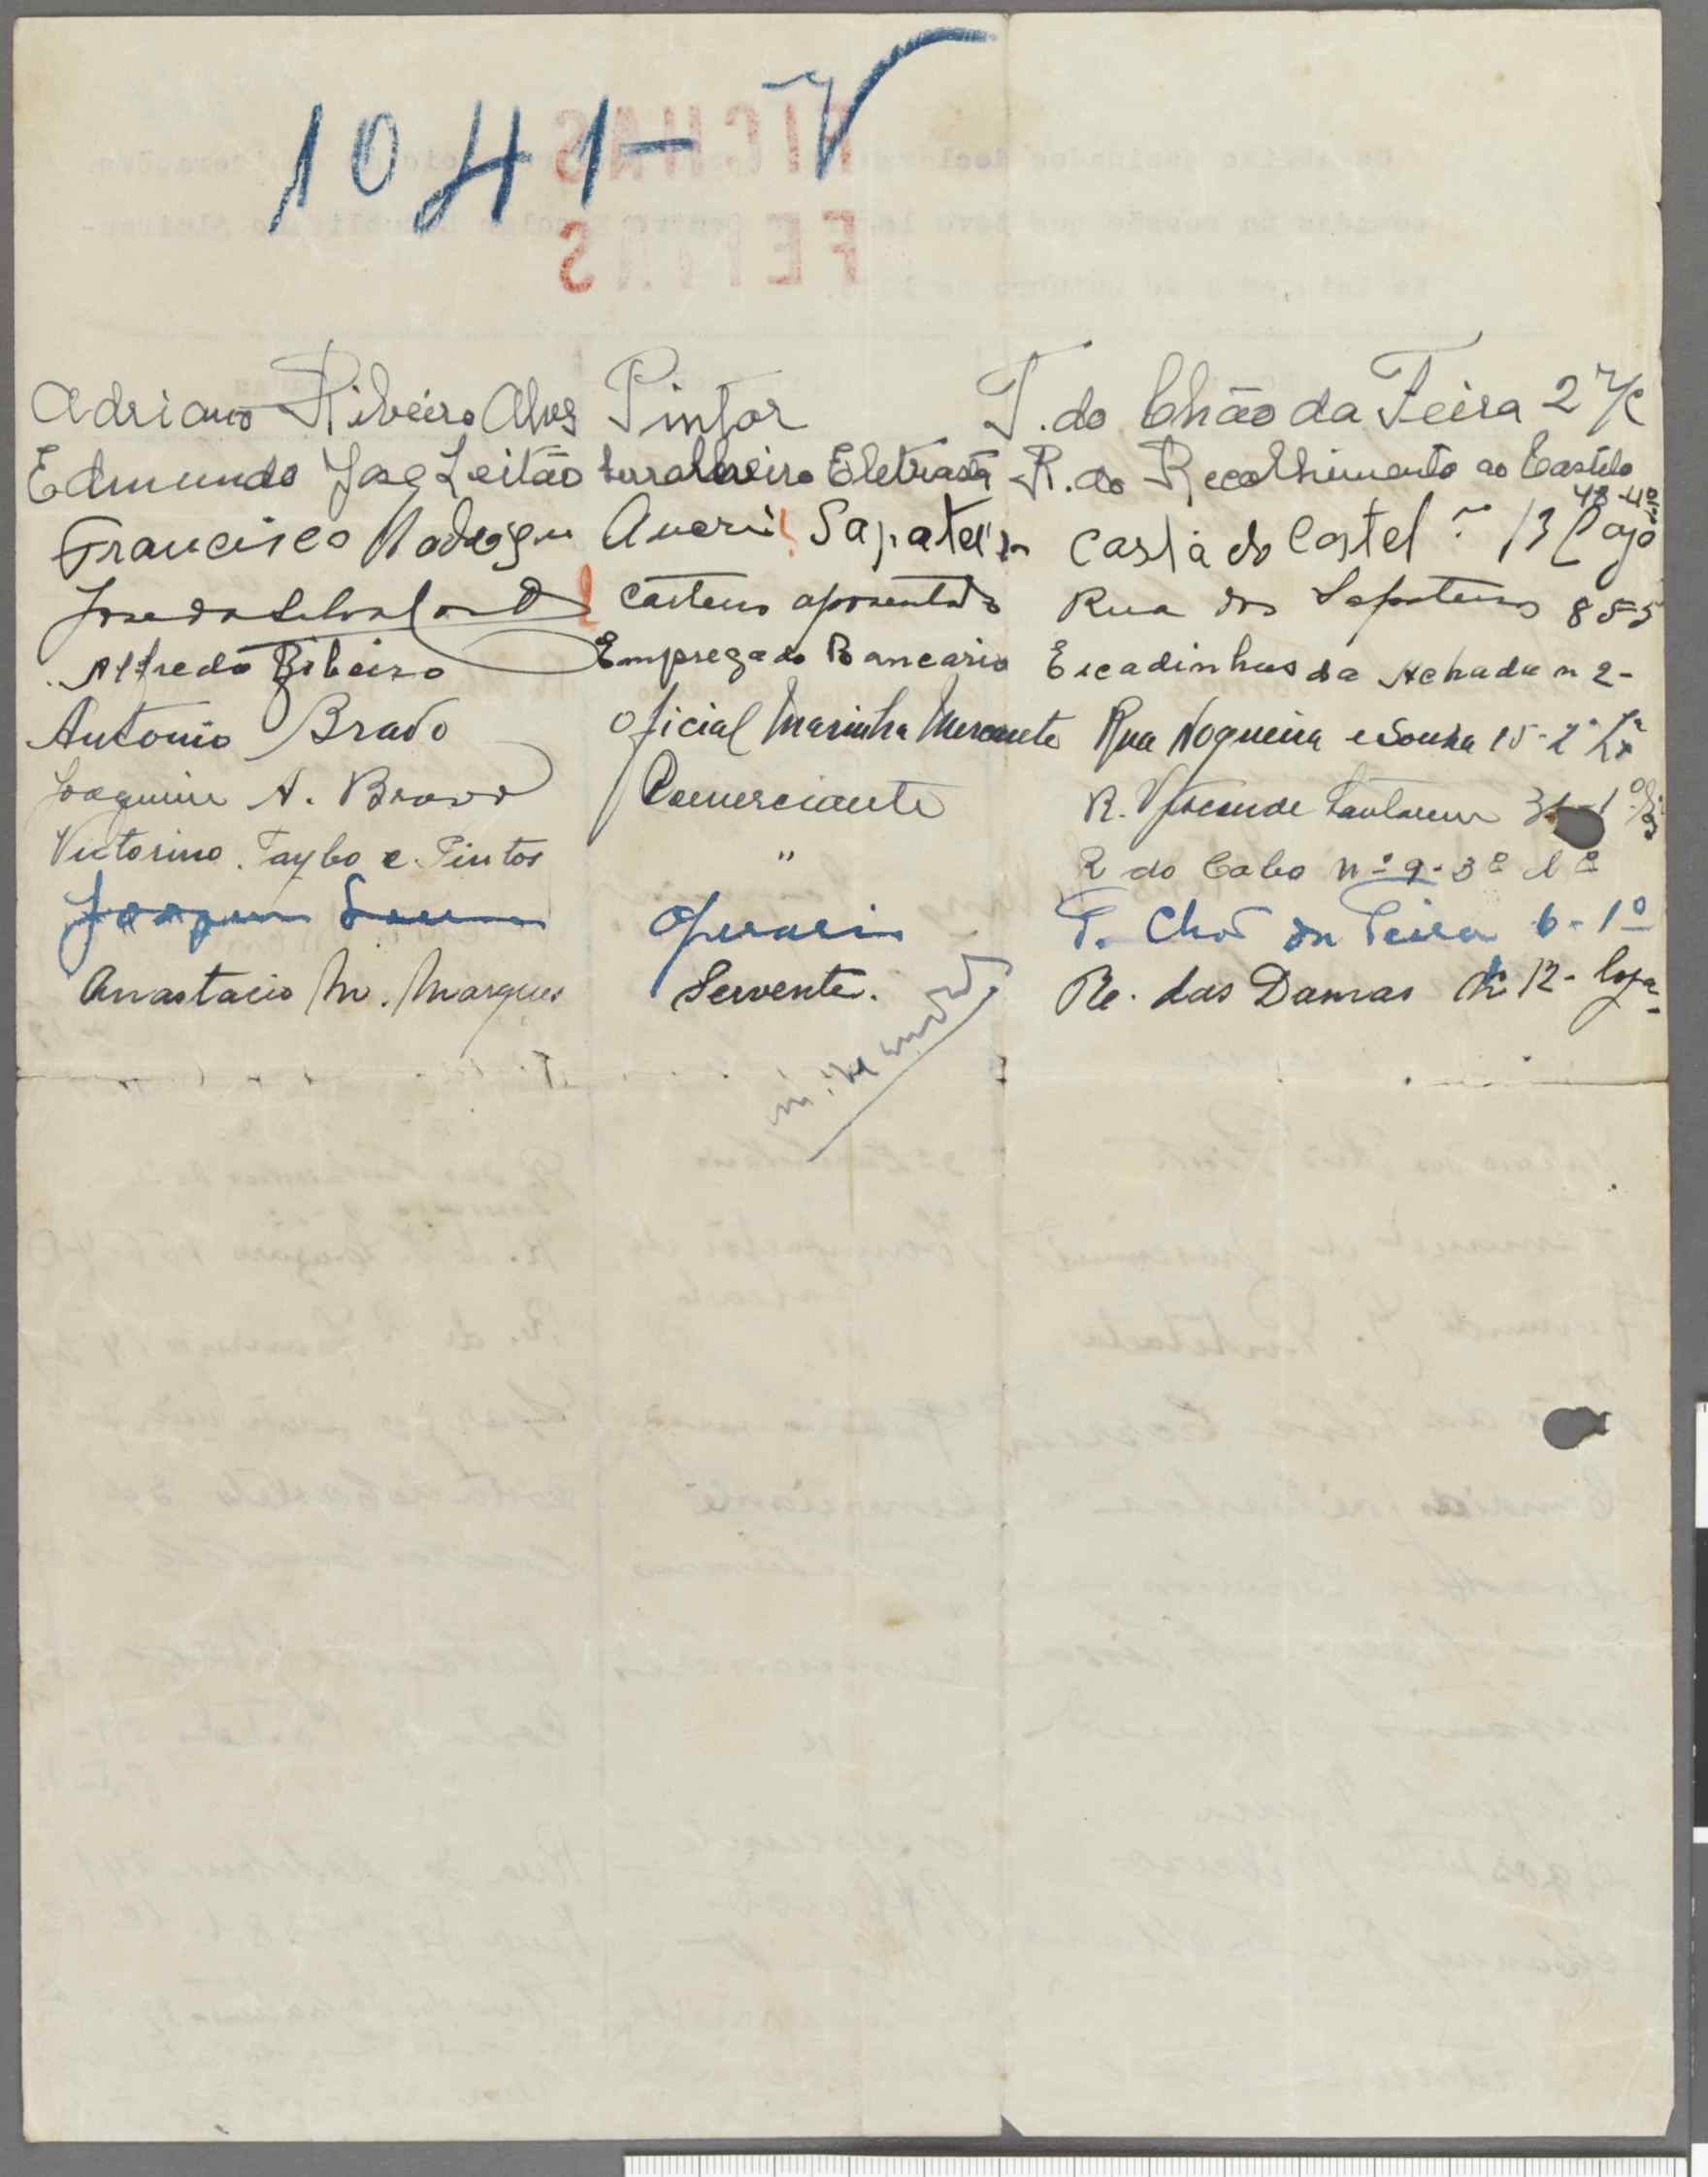 1041-V
Adriano Ribeiro Alves Pintor T. do Chão da Feira 2 r/c
Edmundo José Leitão Serralheiro Eletrista R. do Recolhimento ao Castelo
48-4º
Francisco Rodrigu Sapateiro Costa do Castel 13 Loja
José da Silva Carteiro aposentado Rua dos Sapateiros 85-5
Alfredo Ribeiro Empregado Bancario Escadinhas da Achada n 2-
Antonio Bravo Oficial Marinha Mercante Rua Nogueira e Sousa 15-2º Lx
Joaquim A. Bravo Comerciante R. Visconde Santarem
Victorino. Taybo e. Pintos " R do Cabo nº 9-3º
Joaquim Operario T. Chão da Feira 6-1º
Anastacio M. Marques Servente. Re. das Damas 12- loja-